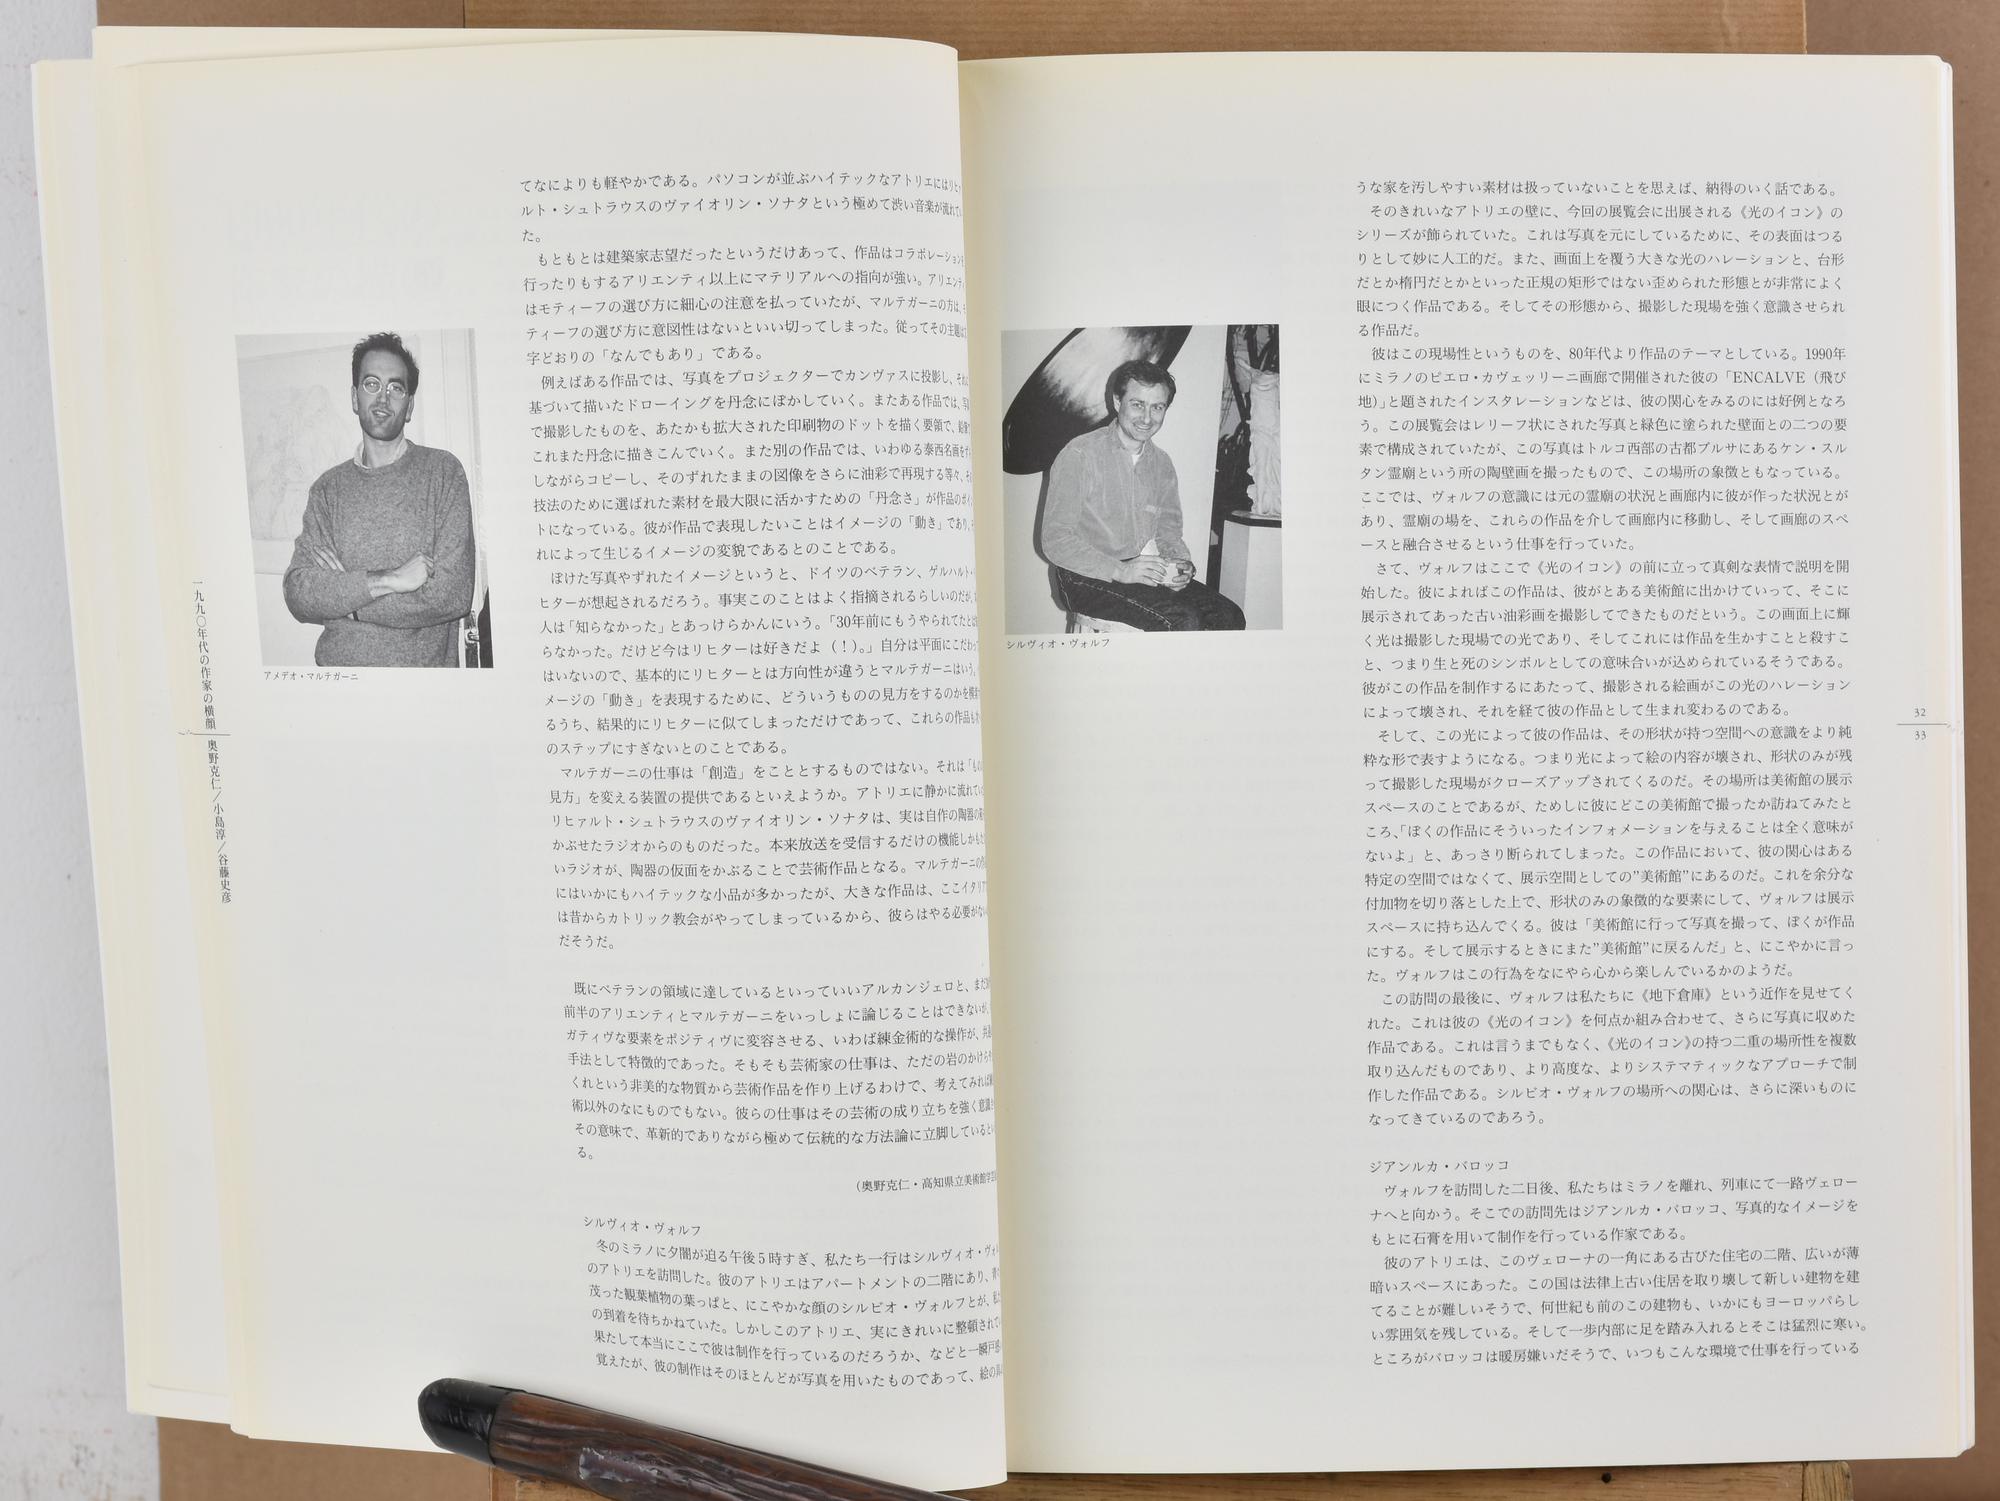 てなによりも軽やかである。パソコンが並ぶハイテックなアトリエにはリヒ
ルト・シュトラウスのヴァイオリン・ソナタという極めて渋い音楽が流れてい
た。
もともとは建築家志望だったというだけあって、作品はコラボレーション
行ったりもするアリエンティ以上にマテリアルへの指向が強い。アリエンテ
はモティーフの選び方に細心の注意を払っていたが、マルテガーニの方は、
ティーフの選び方に意図性はないといい切ってしまった。従ってその主題は
字どおりの「なんでもあり」である。
例えばある作品では、写真をプロジェクターでカンヴァスに投影し、それ
基づいて描いたドローイングを丹念にぼかしていく。またある作品では、写
で撮影したものを、あたかも拡大された印刷物のドットを描く要領で、
これまた丹念に描きこんでいく。また別の作品では、いわゆる泰西名画を
しながらコピーし、そのずれたままの図像をさらに油彩で再現する等々、そ
技法のために選ばれた素材を最大限に活かすための「丹念さ」が作品のポイ
トになっている。彼が作品で表現したいことはイメージの「動き」であり、そ
れによって生じるイメージの変貌であるとのことである。
ぼけた写真やずれたイメージというと、ドイツのベテラン、ゲルハルト・
ヒターが想起されるだろう。事実このことはよく指摘されるらしいのだが、
人は「知らなかった」とあっけらかんにいう。「30年前にもうやられてたとは
らなかった。だけど今はリヒターは好きだよ（！）。」自分は平面にこだわっ
はいないので、基本的にリヒターとは方向性が違うとマルテガーニはいう。
メージの「動き」を表現するために、どういうものの見方をするのかを模索
るうち、結果的にリヒターに似てしまっただけであって、これらの作品も
のステップにすぎないとのことである。
マルテガーニの仕事は「創造」をこととするものではない。それは「もの
見方」を変える装置の提供であるといえようか。アトリエに静かに流れてい
リヒァルト・シュトラウスのヴァイオリン・ソナタは、実は自作の陶器の
かぶせたラジオからのものだった。本来放送を受信するだけの機能しかもた
いラジオが、陶器の仮面をかぶることで芸術作品となる。マルテガーニの作
にはいかにもハイテックな小品が多かったが、大きな作品は、ここイタリア
は昔からカトリック教会がやってしまっているから、彼らはやる必要がない
だそうだ。
既にベテランの領域に達しているといっていいアルカンジェロと、まだ30
前半のアリエンティとマルテガーニをいっしょに論じることはできないが、
ガティヴな要素をポジティヴに変容させる、いわば練金術的な操作が、共通
手法として特徴的であった。そもそも芸術家の仕事は、ただの岩のかけらや
くれという非美的な物質から芸術作品を作り上げるわけで、考えてみれば錬
術以外のなにものでもない。彼らの仕事はその芸術の成り立ちを強く意識
その意味で、革新的でありながら極めて伝統的な方法論に立脚していると
る。
（奥野克仁・高知県立美術館学芸
シルヴィオ・ヴォルフ
冬のミラノに夕闇が迫る午後５時すぎ、私たち一行はシルヴィオ・ヴォ
のアトリエを訪問した。彼のアトリエはアパートメントの二階にあり、青々
茂った観葉植物の葉っぱと、にこやかな顔のシルビオ・ヴォルフとが、私た
の到着を待ちかねていた。しかしこのアトリエ、実にきれいに整頓されてい
果たして本当にここで彼は制作を行っているのだろうか、などと一瞬戸惑
覚えたが、彼の制作はそのほとんどが写真を用いたものであって、絵の具
アメデオ・マルテガーニ
一九九〇年代の作家の横顔
奥野克仁／小島淳／谷藤史彦
シルヴィオ・ヴォルフ
うな家を汚しやすい素材は扱っていないことを思えば、納得のいく話である。
そのきれいなアトリエの壁に、今回の展覧会に出展される《光のイコン》の
シリーズが飾られていた。これは写真を元にしているために、その表面はつる
りとして妙に人工的だ。また、画面上を覆う大きな光のハレーションと、台形
だとか楕円だとかといった正規の矩形ではない歪められた形態とが非常によく
眼につく作品である。そしてその形態から、撮影した現場を強く意識させられ
る作品だ。
彼はこの現場性というものを、80年代より作品のテーマとしている。1990年
にミラノのピエロ・カヴェッリーニ画廊で開催された彼の「ENCALVE（飛び
地)」と題されたインスタレーションなどは、彼の関心をみるのには好例となろ
う。この展覧会はレリーフ状にされた写真と緑色に塗られた壁面との二つの要
素で構成されていたが、この写真はトルコ西部の古都ブルサにあるケン・スル
タン霊廟という所の陶壁画を撮ったもので、この場所の象徴ともなっている。
ここでは、ヴォルフの意識には元の霊廟の状況と画廊内に彼が作った状況とが
あり、霊廟の場を、これらの作品を介して画廊内に移動し、そして画廊のスペ
ースと融合させるという仕事を行っていた。
さて、ヴォルフはここで《光のイコン》の前に立って真剣な表情で説明を開
始した。彼によればこの作品は、彼がとある美術館に出かけていって、そこに
展示されてあった古い油彩画を撮影してできたものだという。この画面上に輝
く光は撮影した現場での光であり、そしてこれには作品を生かすことと殺すこ
と、つまり生と死のシンボルとしての意味合いが込められているそうである。
彼がこの作品を制作するにあたって、撮影される絵画がこの光のハレーション
によって壊され、それを経て彼の作品として生まれ変わるのである。
そして、この光によって彼の作品は、その形状が持つ空間への意識をより純
粋な形で表すようになる。つまり光によって絵の内容が壊され、形状のみが残
って撮影した現場がクローズアップされてくるのだ。その場所は美術館の展示
スペースのことであるが、ためしに彼にどこの美術館で撮ったか訪ねてみたと
ころ、「ぼくの作品にそういったインフォメーションを与えることは全く意味が
ないよ」と、あっさり断られてしまった。この作品において、彼の関心はある
特定の空間ではなくて、展示空間としての”美術館”にあるのだ。これを余分な
付加物を切り落とした上で、形状のみの象徴的な要素にして、ヴォルフは展示
スペースに持ち込んでくる。彼は「美術館に行って写真を撮って、ぼくが作品
にする。そして展示するときにまた”美術館”に戻るんだ」と、にこやかに言っ
た。ヴォルフはこの行為をなにやら心から楽しんでいるかのようだ。
この訪問の最後に、ヴォルフは私たちに《地下倉庫》という近作を見せてく
れた。これは彼の《光のイコン》を何点か組み合わせて、さらに写真に収めた
作品である。これは言うまでもなく、《光のイコン》の持つ二重の場所性を複数
取り込んだものであり、より高度な、よりシステマティックなアプローチで制
作した作品である。シルビオ・ヴォルフの場所への関心は、さらに深いものに
なってきているのであろう。
ジアンルカ・バロッコ
ヴォルフを訪問した二日後、私たちはミラノを離れ、列車にて一路ヴェロー
ナへと向かう。そこでの訪問先はジアンルカ・バロッコ、写真的なイメージを
もとに石膏を用いて制作を行っている作家である。
彼のアトリエは、このヴェローナの一角にある古びた住宅の二階、広いが薄
暗いスペースにあった。この国は法律上古い住居を取り壊して新しい建物を建
てることが難しいそうで、何世紀も前のこの建物も、いかにもヨーロッパらし
い雰囲気を残している。そして一歩内部に足を踏み入れるとそこは猛烈に寒い。
ところがバロッコは暖房嫌いだそうで、いつもこんな環境で仕事を行っている
32
33